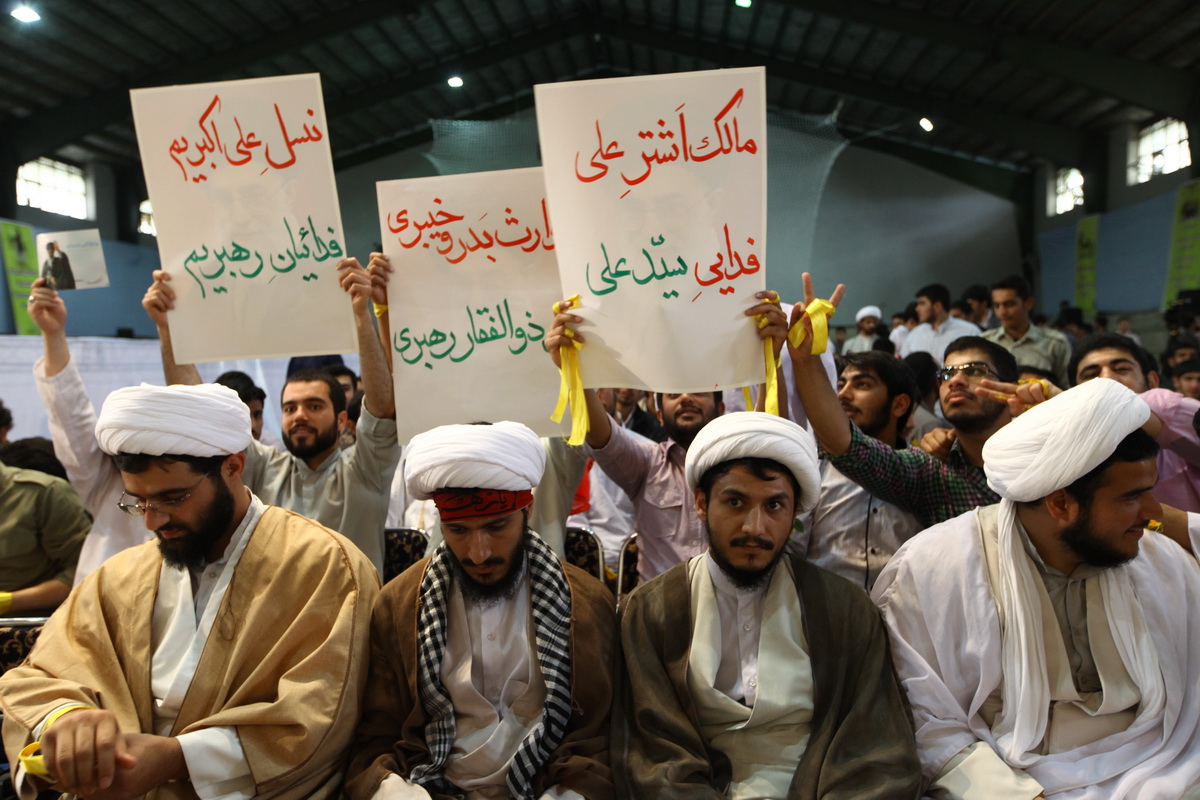 مالک اَشترِ علی
فداییِ سیّد علی
وارث بَدر و خیبری
ذوالفقار رهبری
نسلِ علی اکبریم
فدائیانِ رهبریم